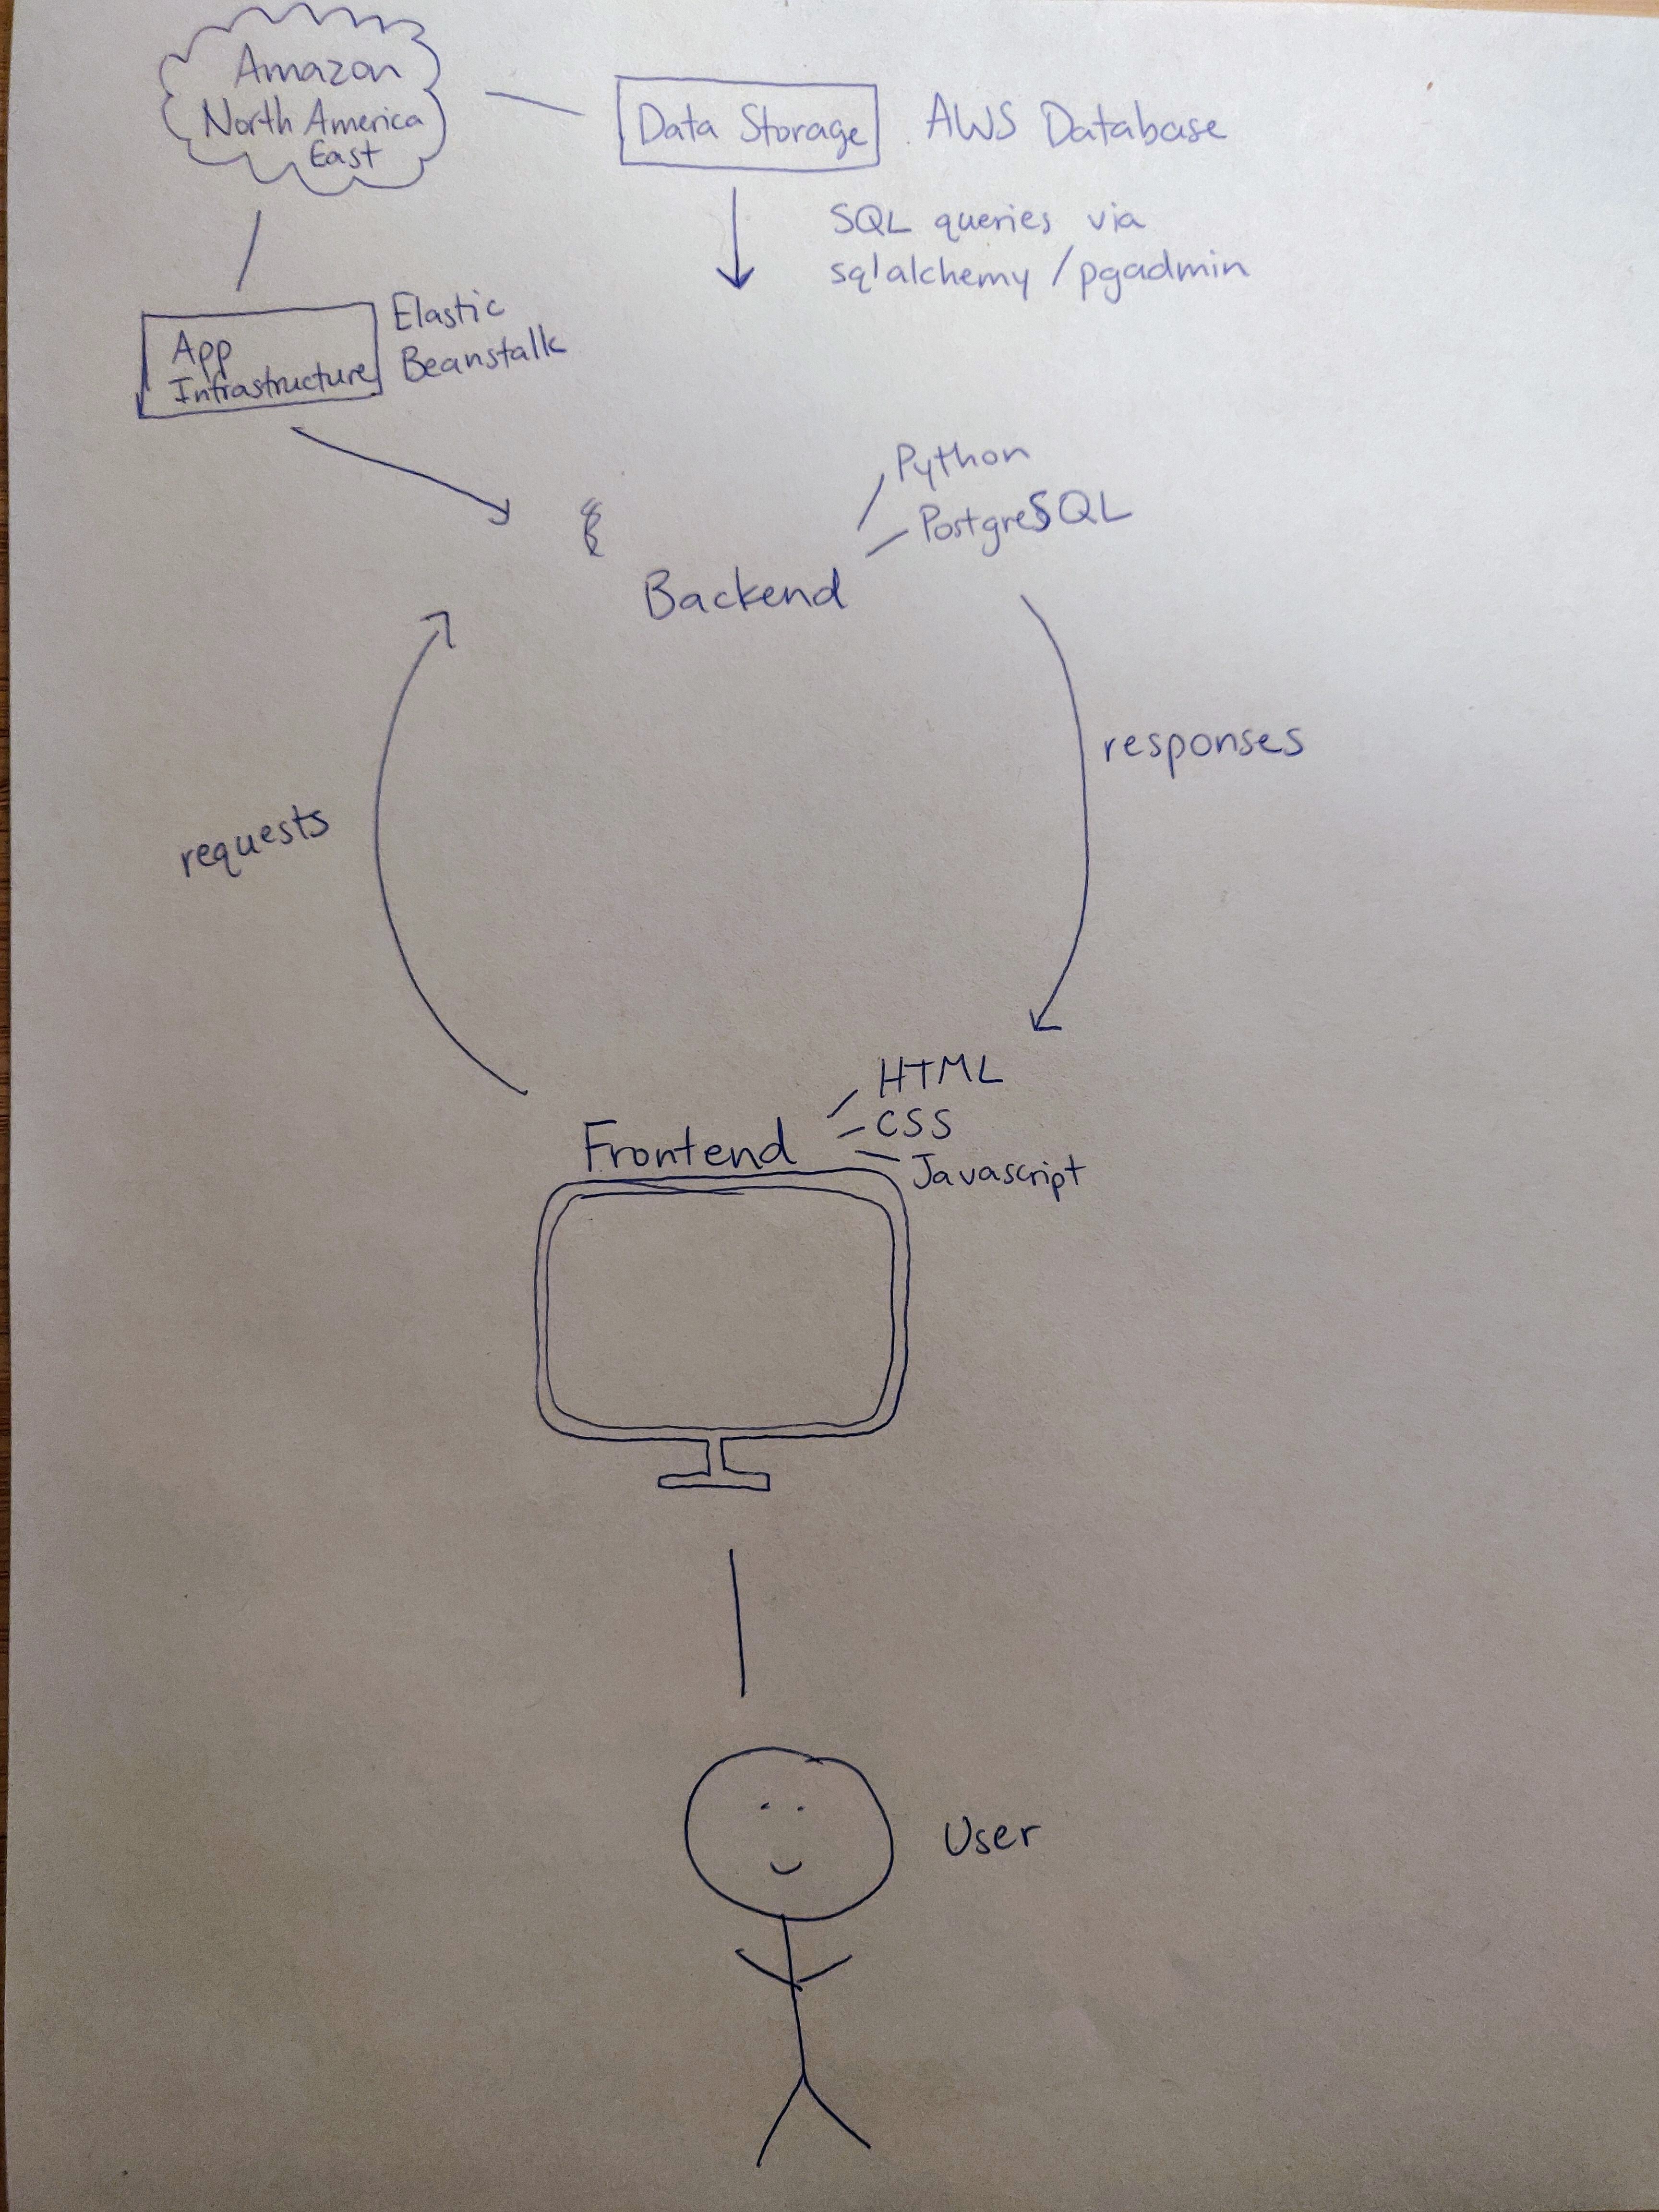 Amazon
North America
East
Data Storage
AWS Database
SQL queries via
sqlalchemy / pgadmin
App
Infrastructure
Elastic
Beanstalk
Python
PostgreSQL
Backend
responses
requests
HTML
CSS
Javascript
Frontend
User